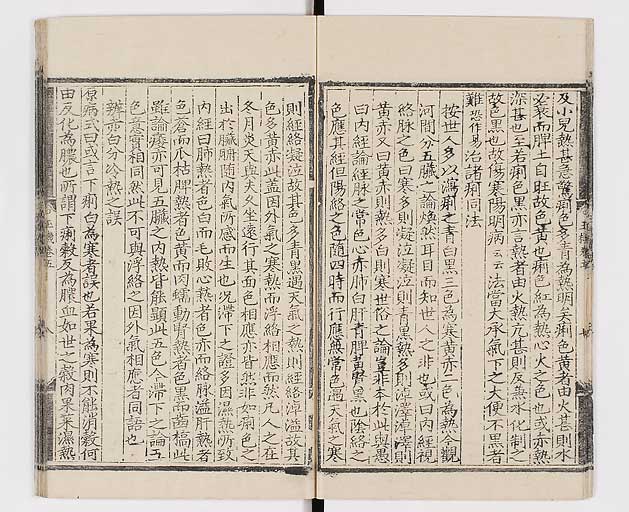 及小兒熱甚急驚痢色多青爲熱明矣痢色黃者由火甚則水
必衰而脾土自旺故色黃也痢色紅爲熱心火之色也或赤熱
深甚也至若痢色黑亦言熱者由火熱亢甚則反兼水化制之
故色黑也故傷寒陽明病云云法當大承氣下之大便不黑者
難恐作易治諸痢同法
按世人多以瀉痢之青白黑三色爲寒黃赤二色爲熱今觀
河間分五臟之論煥然耳目而知世人之非也或曰內經視
絡脉之色曰寒多則凝泣凝泣則青黑熱多則淖澤淖澤則
黃赤又曰黃赤則熱多白則寒世俗之論豈非本於此與愚
曰內經論經脉之常色心赤肺白肝青脾黃腎黑也陰絡之
色應其經但陽絡之色隨四時而行應無常色遇天氣之寒
則經絡凝泣故其色多青黑遇天氣之熱則經絡淖溢故其
色多黃赤此蓋因外氣之寒熱而浮絡相應而然凡人之在
冬月炎天與夫久坐遠行其面色相應亦皆然非如痢色之
出於臟腑隨內氣所感而生也況滯下之證多因濕熱所致
內經曰肺熱者色白而毛敗心熱者色赤而絡脉溢肝熱者
色蒼而爪枯脾熱者色黃而肉蠕動腎熱者色黑而齒槁此
雖論痿亦可見五臟之內熱皆能顯此五色今滯下之論五
色意實相同然此不可與浮絡之因外氣相應者同語也
辨赤白分冷熱之誤
原病式曰或言下痢白爲寒者誤也若果爲寒則不能消穀何
由反化爲膿也所謂下痢穀反爲膿血如世之穀肉果菜濕熱